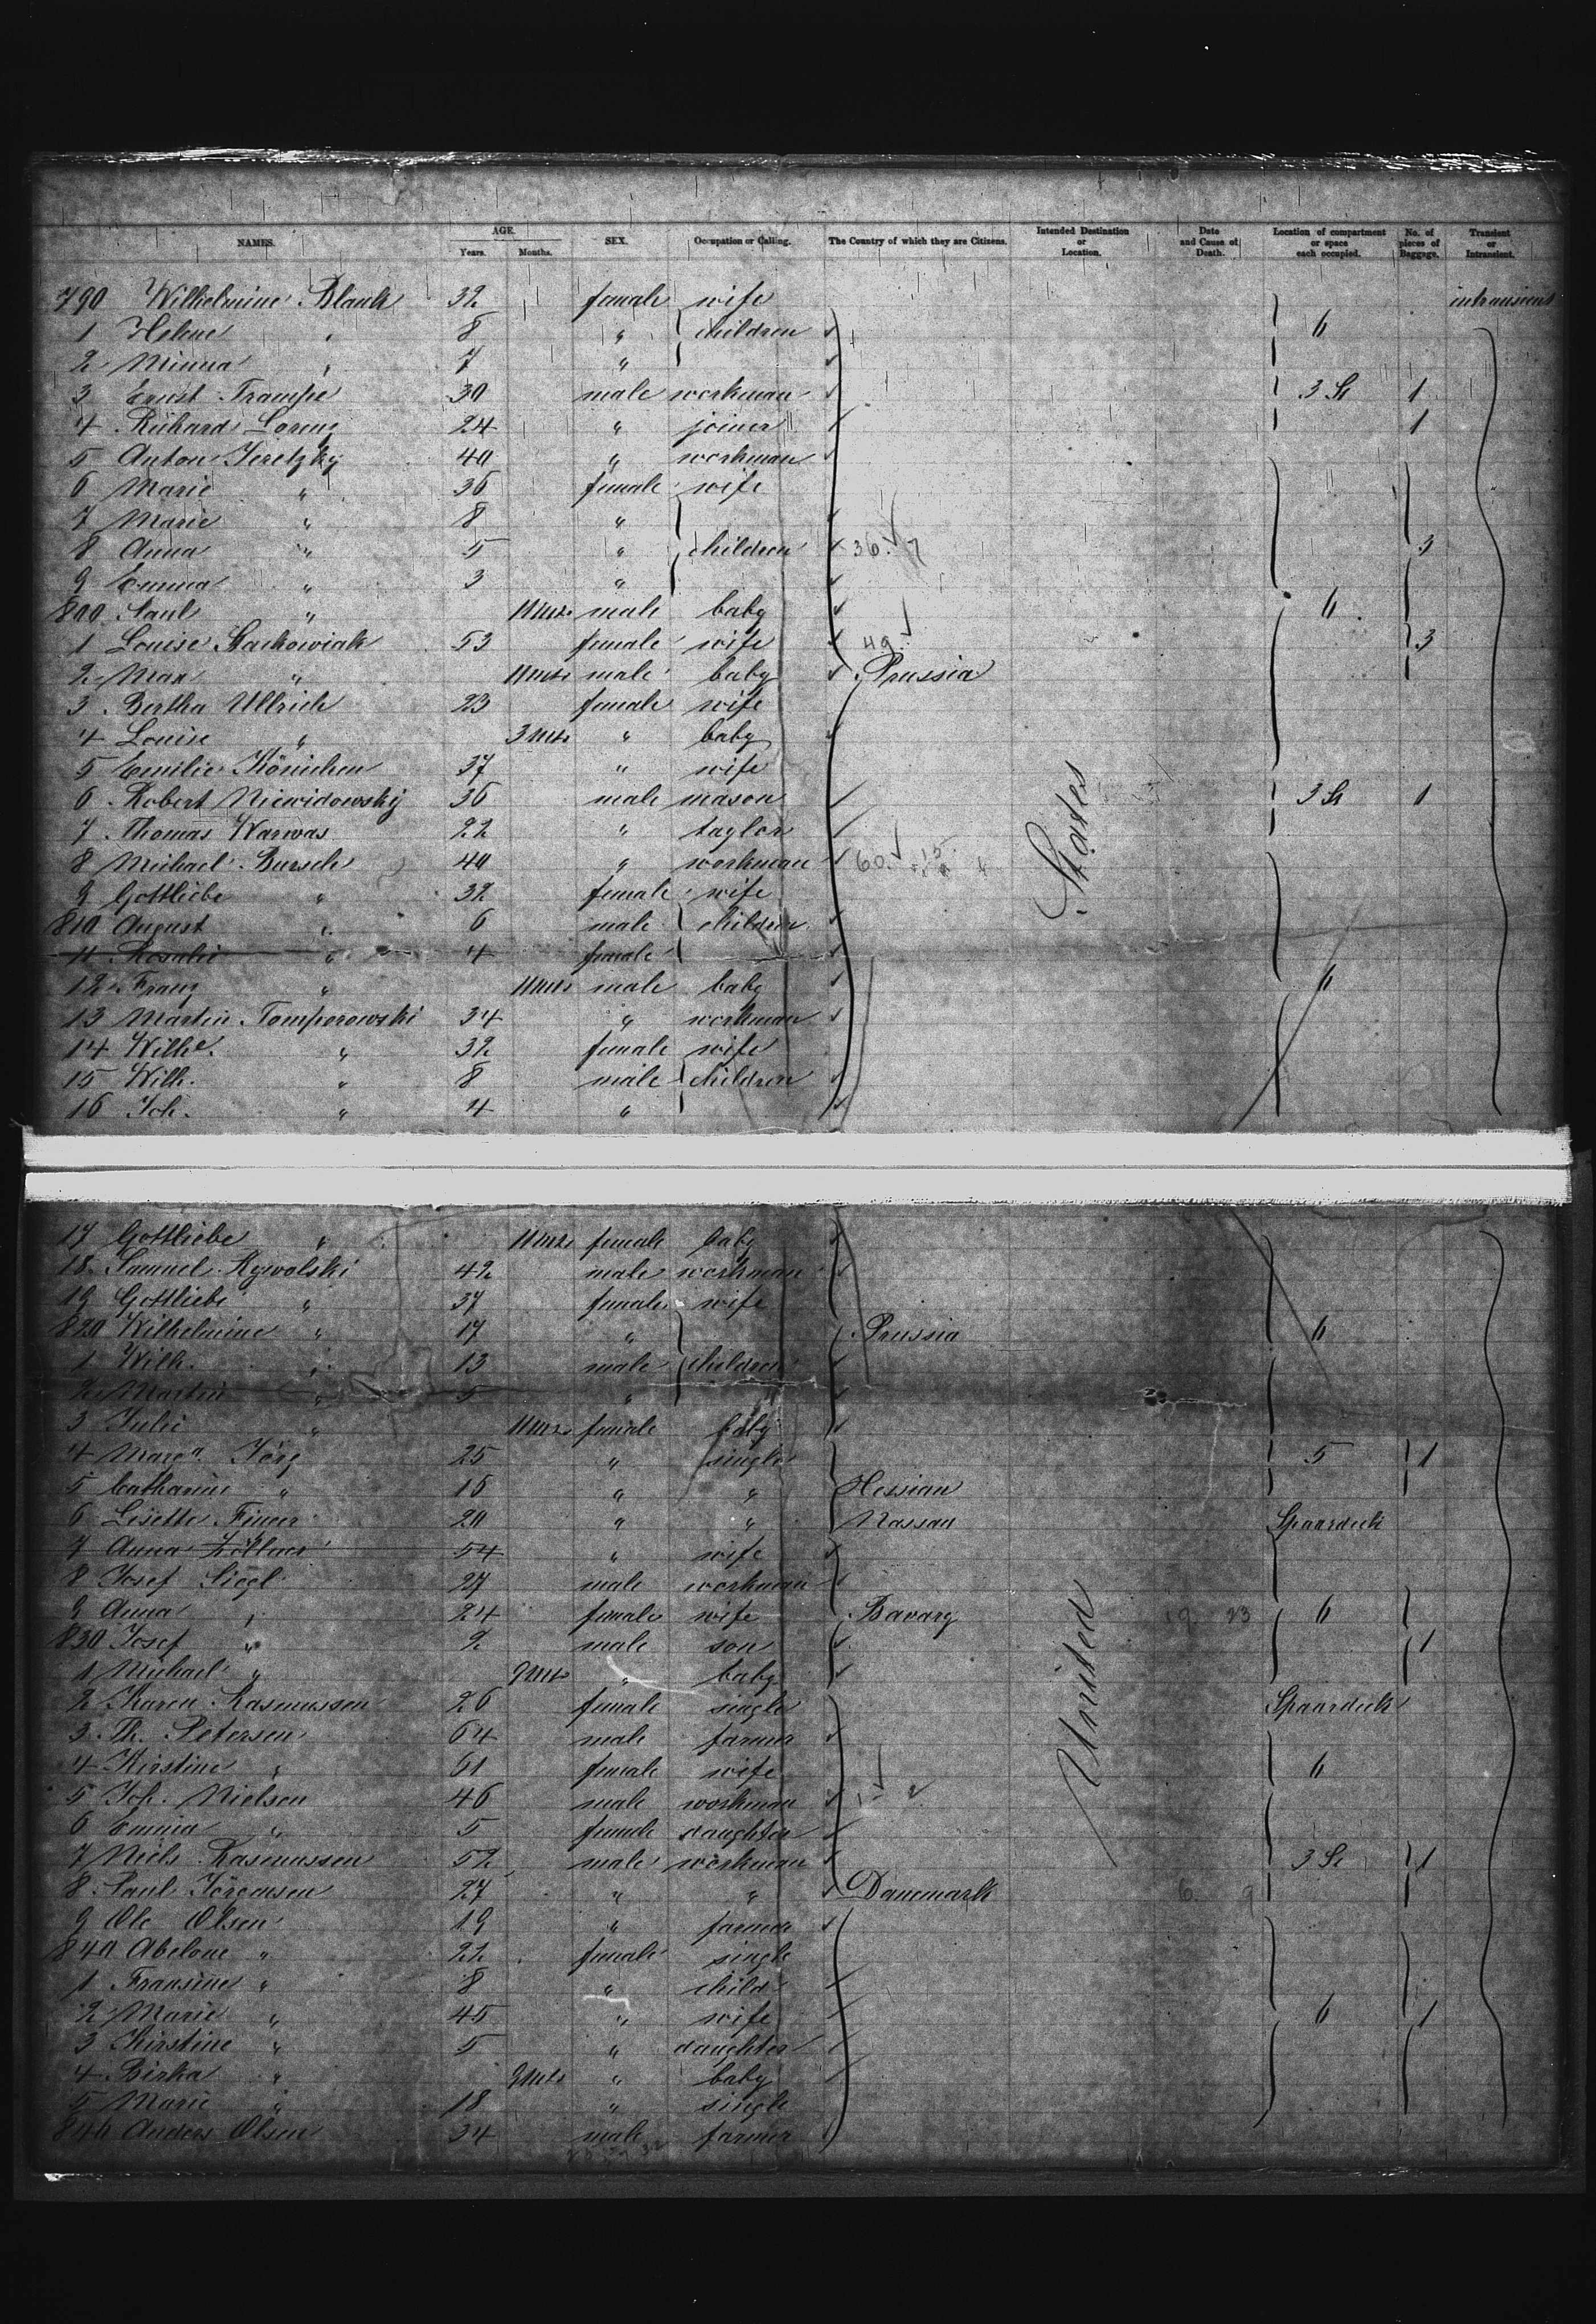 NAMES. AGE. Years. Months. SEX. Occupation or Calling. The Country of which they are Citizens. Intended Destination or Location. Date and Cause of Death. Location of compartment or space each occupied. No. of pieces of Baggage. Transient or Intransient.
790 Wilhelmine Blank 32 female wife intransient
1 Helene " 8 " children 6
2 Minna " 7 "
3 Ernst Trampe 30 male workman 3 St 1
4 Richard Lorenz 24 " joiner 1
5 Anton Jeretzky 40 " workman
6 Marie " 36 female wife
7 Marie " 8 "
8 Anna " 5 " children 36. 7 3
9 Emma " 3 "
800 Paul " 11 Mts male baby 6
1 Louise Stachowiak 53 female wife 49 3
2 Max " 11 Mts male baby Prussia
3 Bertha Ullrich 23 female wife
4 Louise " 3 Mts " baby
5 Emilie Könichen 37 " wife
6 Robert Niewidowsky 36 male mason 3 St 1
7 Thomas Warwas 22 " taylor States
8 Michael Bursch 40 " workman 60.
9 Gottliebe " 32 female wife
810 August " 6 male children
11 Rosalie " 4 female
12 Franz " 11 Mts male baby 6
13 Martin Tomporowski 34 " workman
14 Wilhe. " 32 female wife
15 Wilh. " 8 male children
16 Joh. " 4 "
17 Gottliebe " 11 Mts female baby
18 Samuel Rywolski 42 male workman
19 Gottliebe " 37 female wife
820 Wilhelmine " 17 " Prussia 6
1 Wilh. " 13 male children
2 Martin " 5 "
3 Julie " 11 Mts female baby
4 Marga. Jörg 25 " single 5 1
5 Catharine " 16 " " Hessian
6 Lisette Finer 20 " " Nassau Spaardeck
7 Anna Zöllner 54 " wife
8 Josef Siegl 27 male workman
9 Anna " 24 female wife Bavary 6
830 Josef " 2 male son United 1
1 Michael " 9 Mts " baby
2 Karen Rasmussen 26 female single Spaardeck
3 Th. Petersen 64 male farmer
4 Kirstine " 61 female wife 6
5 Joh. Nielsen 46 male workman
6 Emma " 5 female daughter
7 Niels Rasmussen 52 male workman 3 St 1
8 Paul Jörgensen 27 " " Danemark
9 Ole Olsen 19 " farmer
840 Abelone " 22 female single
1 Fransine " 8 " child
2 Marie " 45 " wife 6 1
3 Kirstine " 5 " daughter
4 Birka " 9 Mts " baby
5 Marie " 18 " single
846 Anders Olsen 34 male farmer